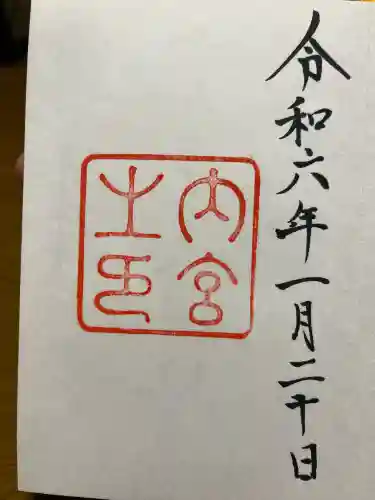 令和六年一月二十日
内宮
之印